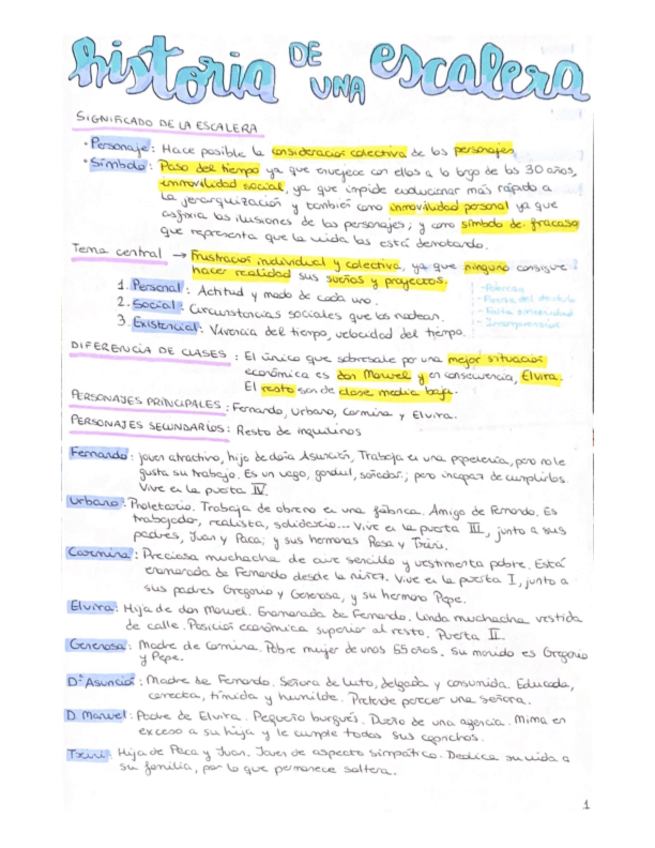 historia DE UNA escalera
SIGNIFICADO DE LA ESCALERA
· Personaje: Hace posible la consideración colectiva de los personajes
· Símbolo: Paso del tiempo ya que envejece con ellos a lo largo de los 30 años,
inmovilidad social, ya que impide evolucionar más rápido a
la jerarquización y también como inmovilidad personal ya que
asfixia las ilusiones de los personajes; y como símbolo de fracaso
que representa que la vida los está derrotando.
Tema central → Frustración individual y colectiva, ya que ninguno consigue
hacer realidad sus sueños y proyectos.
1. Personal: Actitud y modo de cada uno.
2. Social: Circunstancias sociales que los rodean.
3. Existencial: Vivencia del tiempo, velocidad del tiempo.
- Pobreza
DIFERENCIA DE CLASES: El único que sobresale por una mejor situación
económica es don Manuel y en consecuencia, Elvira.
El resto son de clase media baja.
PERSONAJES PRINCIPALES: Fernando, Urbano, Carmina y Elvira.
PERSONAJES SECUNDARIOS: Resto de inquilinos
Fernando: joven atractivo, hijo de doña Asunción, Trabaja en una papelería, pero no le
gusta su trabajo. Es un vago, gandul, soñador; pero incapaz de cumplirlos.
Vive en la puerta IV.
Urbano: Proletario. Trabaja de obrero en una fábrica. Amigo de Fernando. Es
trabajador, realista, solidario... Vive en la puerta III, junto a sus
padres, Juan y Paca; y sus hermanas Rosa y Trini.
Carmina: Preciosa muchacha de aire sencillo y vestimenta pobre. Está
enamorada de Fernando desde la niñez. Vive en la puerta I, junto a
sus padres Gregorio y Generosa, y su hermano Pepe.
Elvira: Hija de don Manuel. Enamorada de Fernando. Linda muchacha vestida
de calle. Posición económica superior al resto. Puerta II.
Generosa: Madre de Carmina. Pobre mujer de unos 55 años. Su marido es Gregorio
y Pepe.
Dª Asunción: Madre de Fernando. Señora de luto, delgada y consumida. Educada,
correcta, tímida y humilde. Pretende parecer una señora.
D. Manuel: Padre de Elvira. Pequeño burgués. Dueño de una agencia. Mima en
exceso a su hija y le cumple todos sus caprichos.
Trini: Hija de Paca y Juan. Joven de aspecto simpático. Dedica su vida a
su familia, por lo que permanece soltera.
1